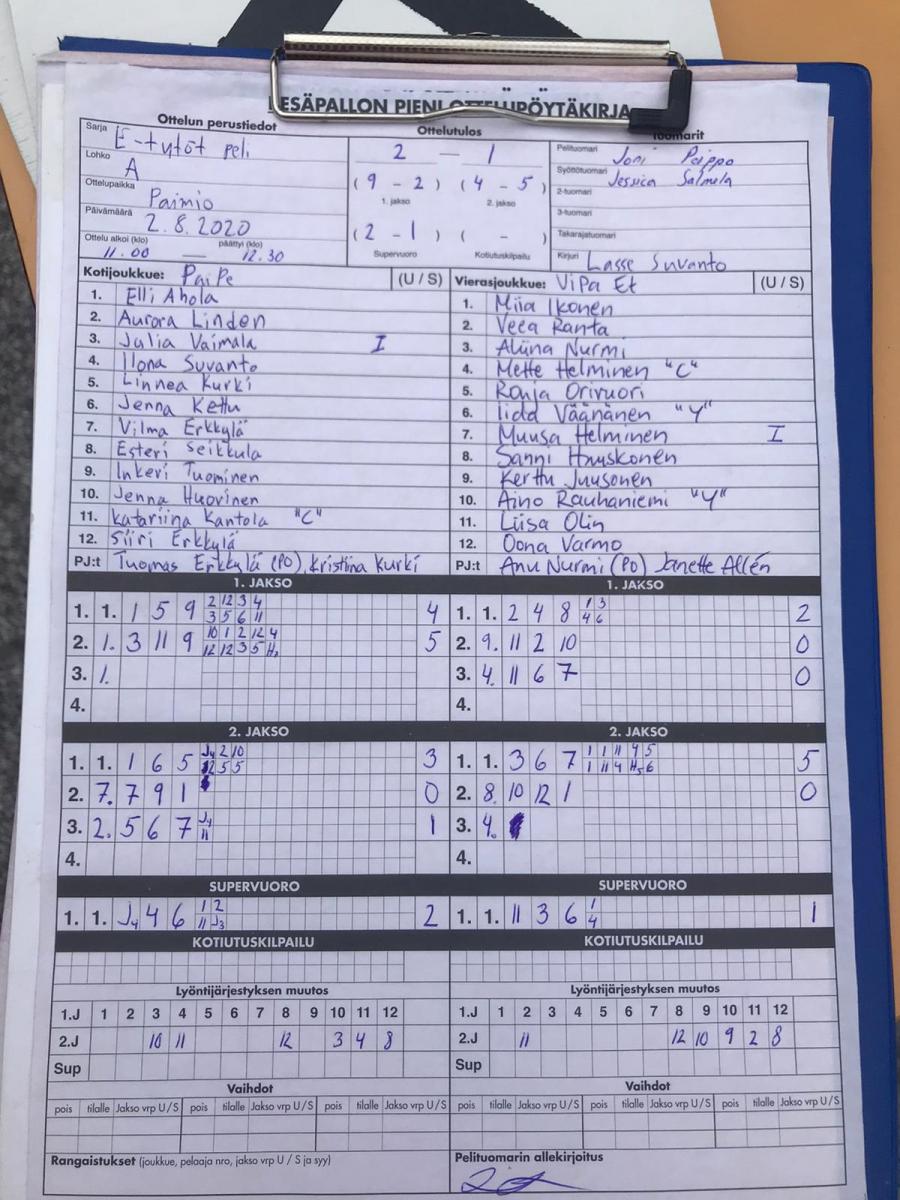 PESÄPALLON PIENI OTTELUPÖYTÄKIRJA
Ottelun perustiedot
Sarja E-tytöt peli
Lohko A
Ottelupaikka Paimio
Päivämäärä 2.8.2020
Ottelu alkoi (klo) päättyi (klo)
11.00 — 12.30
Ottelutulos
2 — 1
(9 - 2) (4 - 5)
1. jakso 2. jakso
(2 - 1) ( - )
Supervuoro Kotiutuskilpailu
Tuomarit
Pelituomari Joni Peippo
Syöttötuomari Jessica Salmela
2-tuomari
3-tuomari
Takarajatuomari
Kirjuri Lasse Suvanto
Kotijoukkue: PaiPe (U / S)
1. Elli Ahola
2. Aurora Linden
3. Julia Vaimala I
4. Ilona Suvanto
5. Linnea Kurki
6. Jenna Kettu
7. Vilma Erkkylä
8. Esteri Seikkula
9. Inkeri Tuominen
10. Jenna Huovinen
11. Katariina Kantola "C"
12. Siiri Erkkylä
PJ:t Tuomas Erkkylä (PO), Kristiina Kurki
Vierasjoukkue: ViPa Et (U / S)
1. Miia Ikonen
2. Veea Ranta
3. Aliina Nurmi
4. Mette Helminen "C"
5. Ronja Orivuori
6. Iida Väänänen "Y"
7. Muusa Helminen I
8. Sanni Huuskonen
9. Kerttu Juusonen
10. Aino Rauhaniemi "Y"
11. Liisa Olin
12. Oona Varmo
PJ:t Anu Nurmi (PO) Janette Allén
1. JAKSO
1. 1. 1 5 9 2 12 3 4 4
3 5 6 11
2. 1. 3 11 9 10 1 2 12 4 5
12 12 3 5 H₂
3. 1.
4.
1. JAKSO
1. 1. 2 4 8 1 3 2
4 6
2. 9. 11 2 10 0
3. 4. 11 6 7 0
4.
2. JAKSO
1. 1. 1 6 5 J4 2 10 3
12 5 5
2. 7. 7 9 1 0
3. 2. 5 6 7 J4 1
11
4.
2. JAKSO
1. 1. 3 6 7 1 1 11 4 5 5
1 11 4 H5 6
2. 8. 10 12 1 0
3. 4.
4.
SUPERVUORO
1. 1. J4 4 6 1 2 2
11 J3
SUPERVUORO
1. 1. 11 3 6 1 1
4
KOTIUTUSKILPAILU
KOTIUTUSKILPAILU
Lyöntijärjestyksen muutos
1.J 1 2 3 4 5 6 7 8 9 10 11 12
2.J 10 11 12 3 4 8
Sup
Lyöntijärjestyksen muutos
1.J 1 2 3 4 5 6 7 8 9 10 11 12
2.J 11 12 10 9 2 8
Sup
Vaihdot
pois tilalle Jakso vrp U / S pois tilalle Jakso vrp U / S pois tilalle Jakso vrp U / S
Vaihdot
pois tilalle Jakso vrp U / S pois tilalle Jakso vrp U / S pois tilalle Jakso vrp U / S
Rangaistukset (joukkue, pelaaja nro, jakso vrp U / S ja syy)
Pelituomarin allekirjoitus